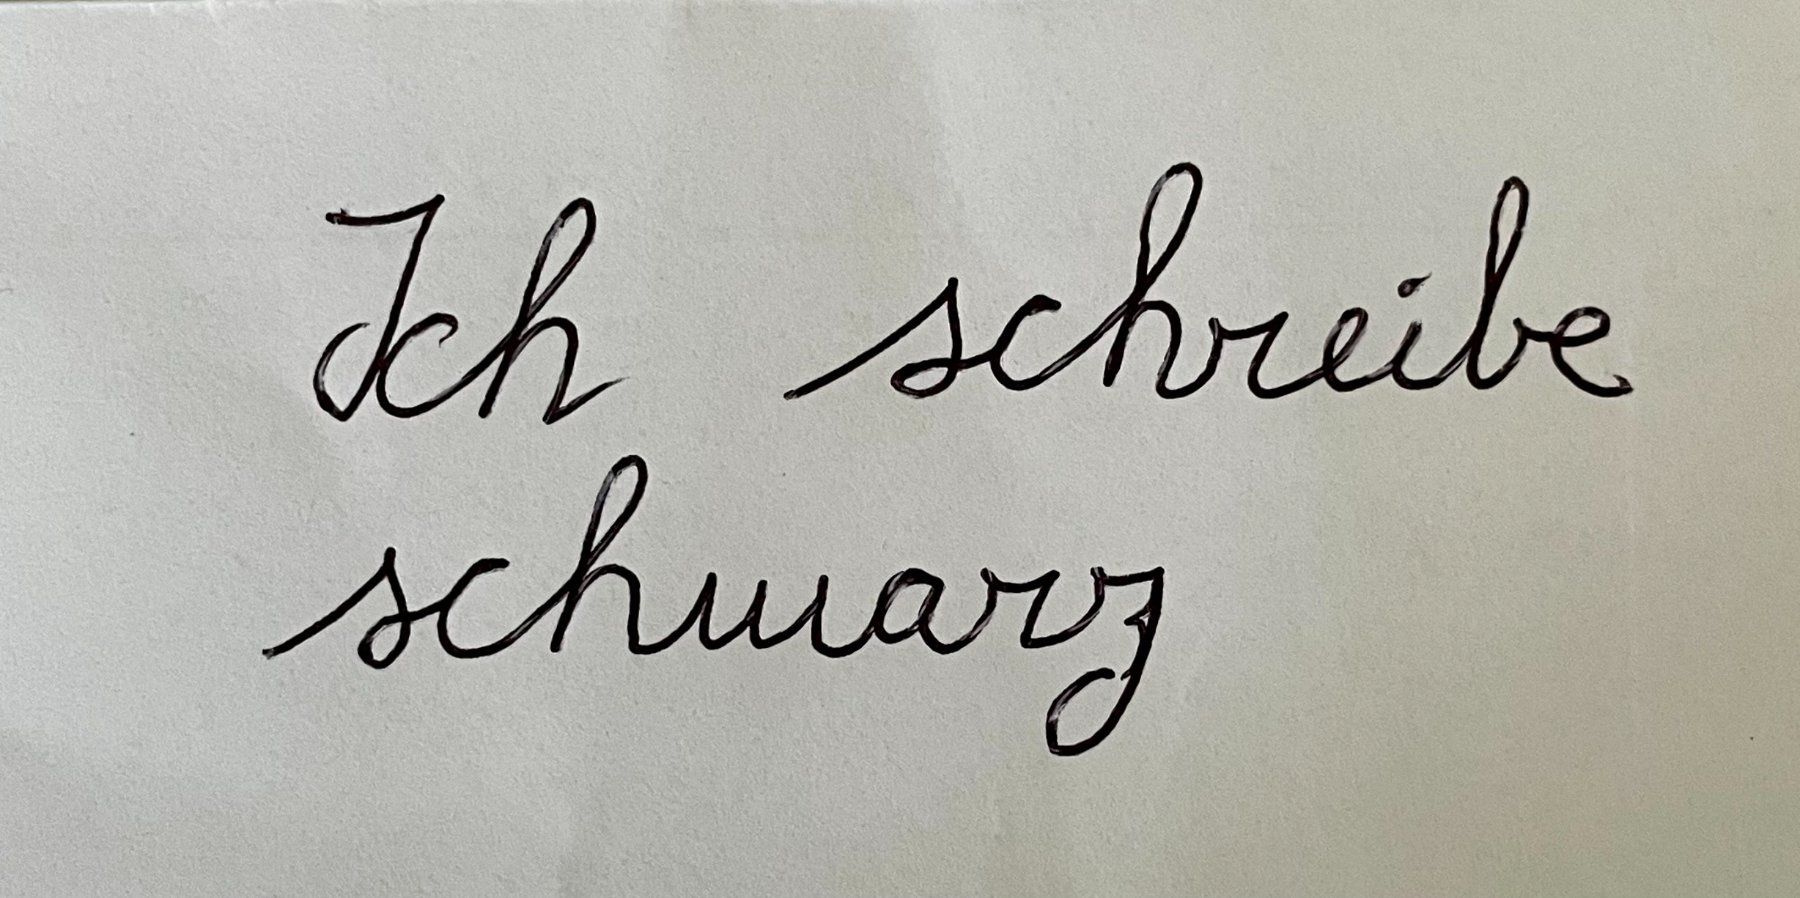 Ich schreibe
schwarz